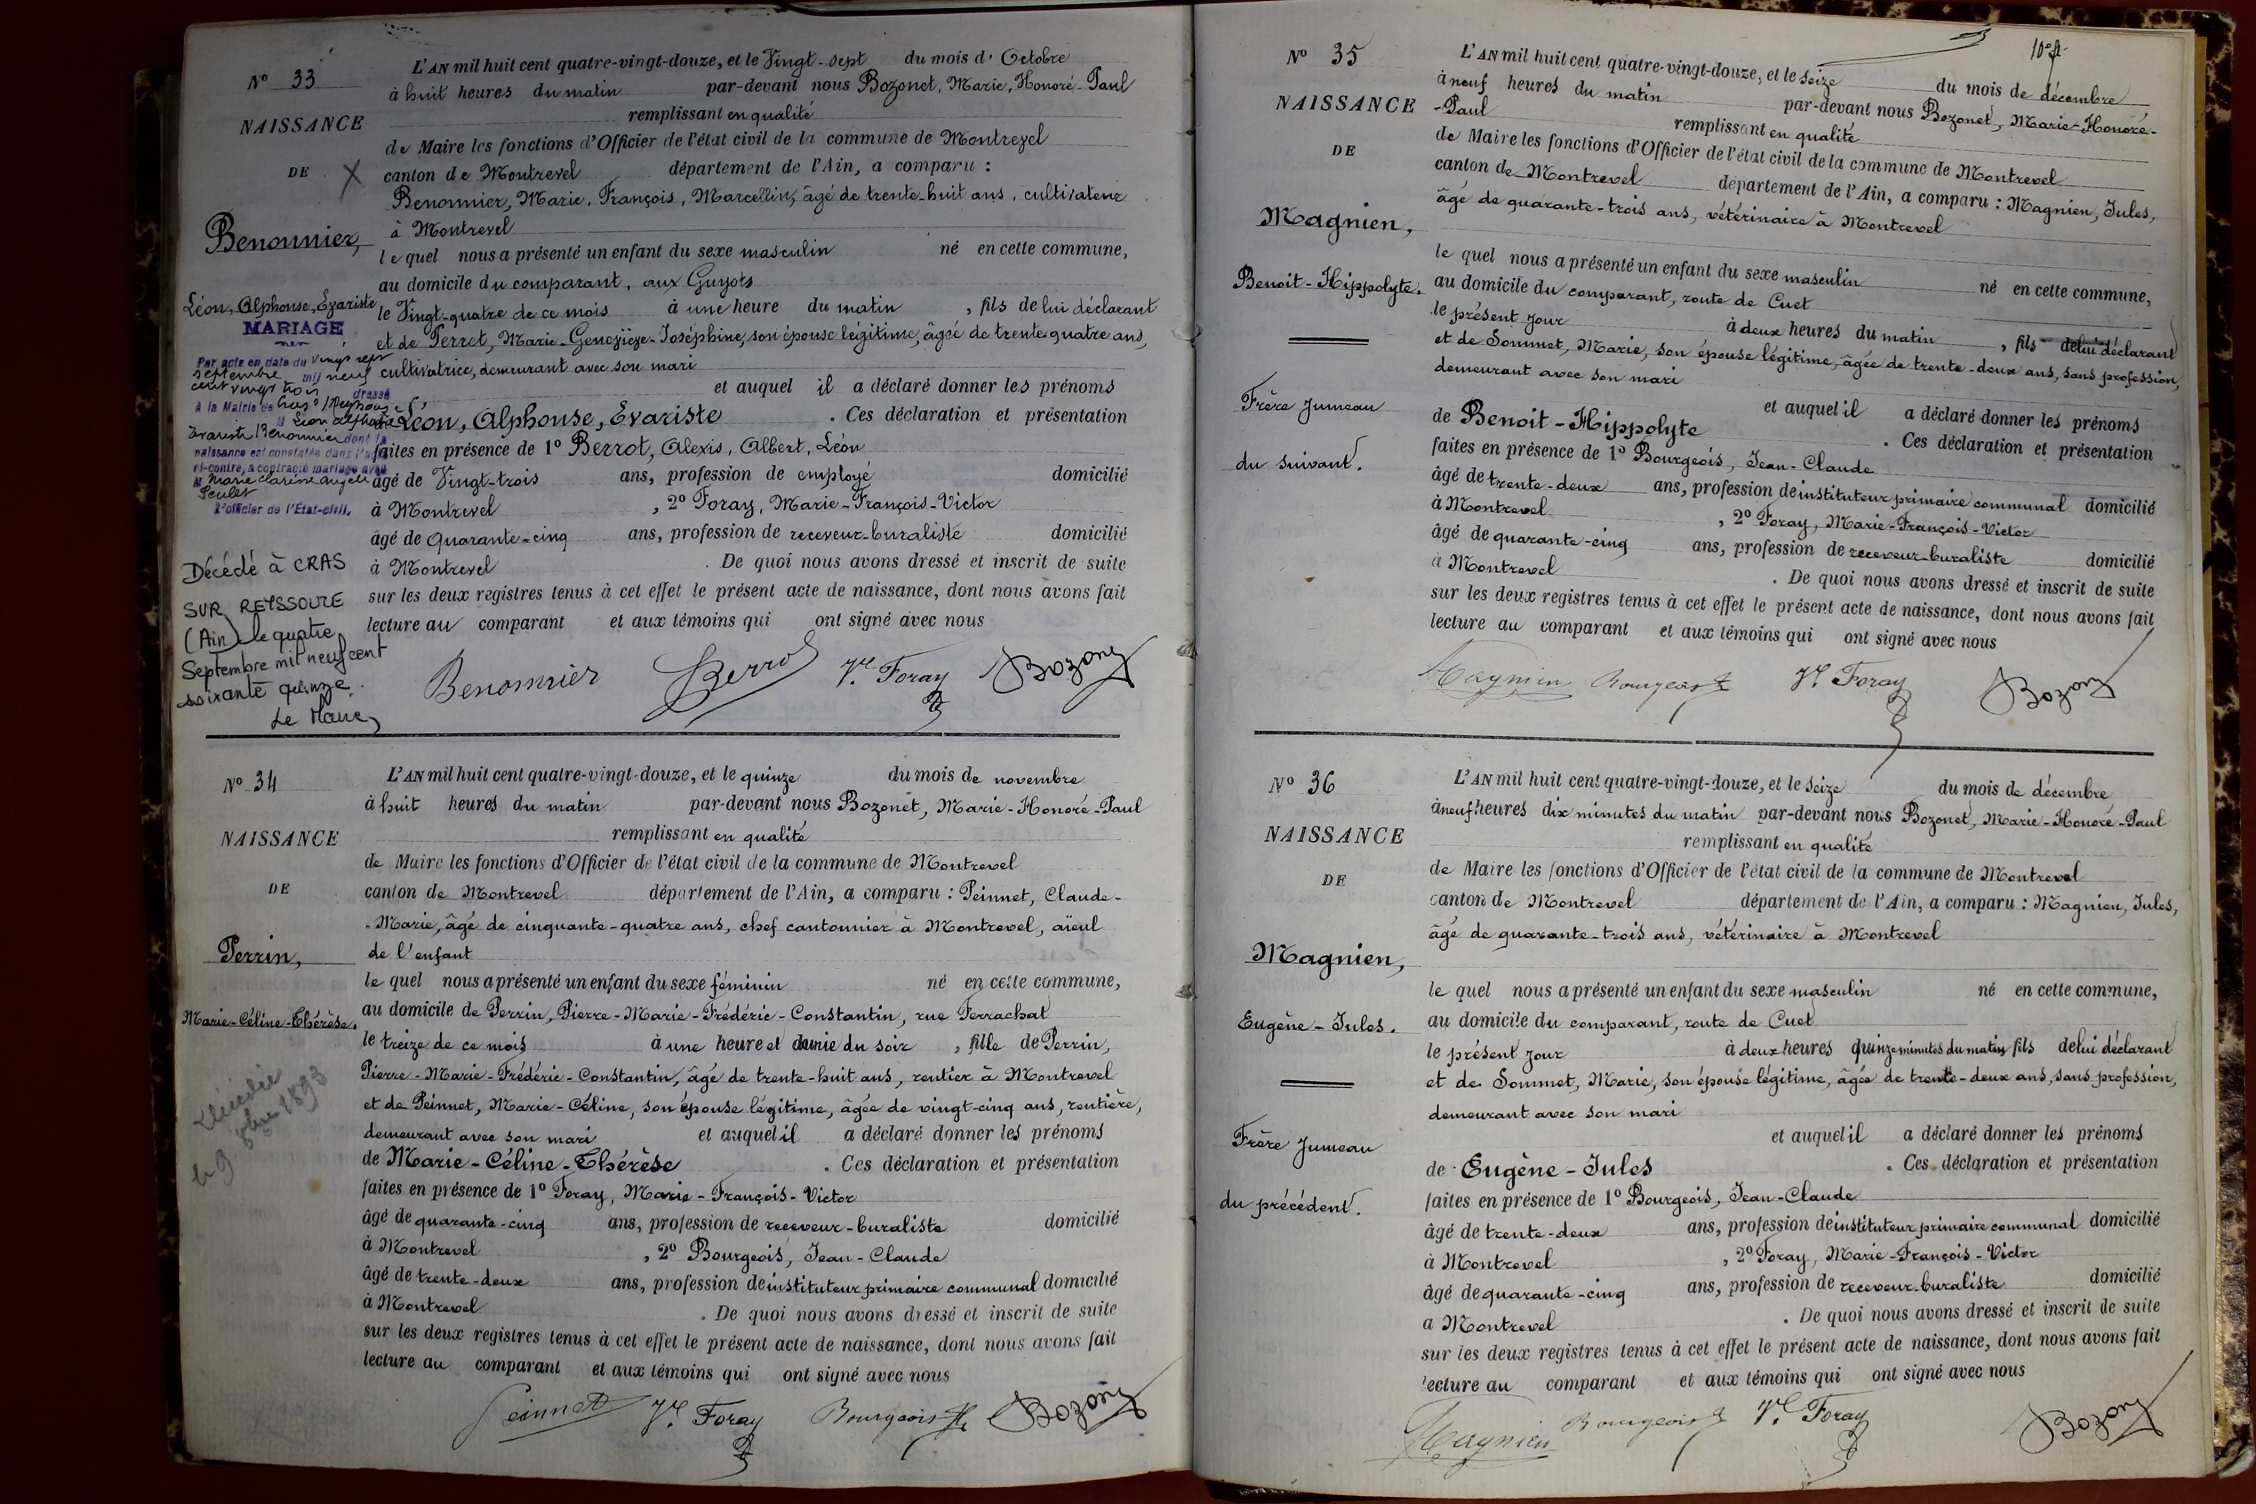 N° 33
NAISSANCE
DE
Benonnier,
Léon, Alphonse, Evariste
MARIAGE
Par acte en date du vingt sept
septembre mil neuf
cent vingt trois dressé
à la Mairie de Cras s/ Reyssouze
M Léon Alphonse
Evariste Benonnier dont la
naissance est constatée dans l'acte
ci-contre, a contracté mariage avec
M Marie Clarisse Angèle
L'officier de l'État-civil.
Décédé à CRAS
SUR REYSSOUZE
(Ain) le quatre
Septembre mil neuf cent
soixante quinze.
Le Maire,
L'AN mil huit cent quatre-vingt-douze, et le Vingt-sept du mois d'Octobre
à huit heures du matin par-devant nous Bozonet, Marie, Honoré-Paul
remplissant en qualité
de Maire les fonctions d'Officier de l'état civil de la commune de Montrevel
canton de Montrevel département de l'Ain, a comparu :
Benonnier, Marie, François, Marcellin, âgé de trente-huit ans, cultivateur
à Montrevel
le quel nous a présenté un enfant du sexe masculin né en cette commune,
au domicile du comparant, aux Guyots
le Vingt-quatre de ce mois à une heure du matin , fils de lui déclarant
et de Perret, Marie-Geneviève-Joséphine, son épouse légitime, âgée de trente-quatre ans,
cultivatrice, demeurant avec son mari
et auquel il a déclaré donner les prénoms
de Léon, Alphonse, Evariste . Ces déclaration et présentation
faites en présence de 1° Berrot, Alexis, Albert, Léon
âgé de Vingt-trois ans, profession de employé domicilié
à Montrevel , 2° Foray, Marie-François-Victor
âgé de Quarante-cinq ans, profession de receveur-buraliste domicilié
à Montrevel . De quoi nous avons dressé et inscrit de suite
sur les deux registres tenus à cet effet le présent acte de naissance, dont nous avons fait
lecture au comparant et aux témoins qui ont signé avec nous
Benonnier Berrot Vr Foray Bozonet
N° 34
NAISSANCE
DE
Perrin,
Marie-Céline-Thérèse.
Décédée
le 9 1893
L'AN mil huit cent quatre-vingt-douze, et le quinze du mois de novembre
à huit heures du matin par-devant nous Bozonet, Marie-Honoré-Paul
remplissant en qualité
de Maire les fonctions d'Officier de l'état civil de la commune de Montrevel
canton de Montrevel département de l'Ain, a comparu : Peinnet, Claude-
-Marie, âgé de cinquante-quatre ans, chef cantonnier à Montrevel, aïeul
de l'enfant
le quel nous a présenté un enfant du sexe féminin né en cette commune,
au domicile de Perrin, Pierre-Marie-Frédéric-Constantin, rue Ferrachat
le treize de ce mois à une heure et demie du soir , fille de Perrin,
Pierre-Marie-Frédéric-Constantin, âgé de trente-huit ans, rentier à Montrevel
et de Peinnet, Marie-Céline, son épouse légitime, âgée de vingt-cinq ans, rentière,
demeurant avec son mari et auquel il a déclaré donner les prénoms
de Marie-Céline-Thérèse . Ces déclaration et présentation
faites en présence de 1° Foray, Marie-François-Victor
âgé de quarante-cinq ans, profession de receveur-buraliste domicilié
à Montrevel , 2° Bourgeois, Jean-Claude
âgé de trente-deux ans, profession de instituteur primaire communal domicilié
à Montrevel . De quoi nous avons dressé et inscrit de suite
sur les deux registres tenus à cet effet le présent acte de naissance, dont nous avons fait
lecture au comparant et aux témoins qui ont signé avec nous
Peinnet Vr Foray Bourgeois Bozonet
N° 35
NAISSANCE
DE
Magnien,
Benoit-Hippolyte.
Frère jumeau
du suivant.
L'AN mil huit cent quatre-vingt-douze, et le seize du mois de décembre
à neuf heures du matin par-devant nous Bozonet, Marie-Honoré-
-Paul remplissant en qualité
de Maire les fonctions d'Officier de l'état civil de la commune de Montrevel
canton de Montrevel département de l'Ain, a comparu : Magnien, Jules,
âgé de quarante-trois ans, vétérinaire à Montrevel
le quel nous a présenté un enfant du sexe masculin né en cette commune,
au domicile du comparant, route de Cuet
le présent jour à deux heures du matin , fils de lui déclarant
et de Sommet, Marie, son épouse légitime, âgée de trente-deux ans, sans profession,
demeurant avec son mari
et auquel il a déclaré donner les prénoms
de Benoit-Hippolyte . Ces déclaration et présentation
faites en présence de 1° Bourgeois, Jean-Claude
âgé de trente-deux ans, profession de instituteur primaire communal domicilié
à Montrevel , 2° Foray, Marie-François-Victor
âgé de quarante-cinq ans, profession de receveur-buraliste domicilié
à Montrevel . De quoi nous avons dressé et inscrit de suite
sur les deux registres tenus à cet effet le présent acte de naissance, dont nous avons fait
lecture au comparant et aux témoins qui ont signé avec nous
Magnien Bourgeois Vr Foray Bozonet
N° 36
NAISSANCE
DE
Magnien,
Eugène-Jules.
Frère jumeau
du précédent.
L'AN mil huit cent quatre-vingt-douze, et le seize du mois de décembre
à neuf heures dix minutes du matin par-devant nous Bozonet, Marie-Honoré-Paul
remplissant en qualité
de Maire les fonctions d'Officier de l'état civil de la commune de Montrevel
canton de Montrevel département de l'Ain, a comparu : Magnien, Jules,
âgé de quarante-trois ans, vétérinaire à Montrevel
le quel nous a présenté un enfant du sexe masculin né en cette commune,
au domicile du comparant, route de Cuet
le présent jour à deux heures quinze minutes du matin, fils de lui déclarant
et de Sommet, Marie, son épouse légitime, âgée de trente-deux ans, sans profession,
demeurant avec son mari
et auquel il a déclaré donner les prénoms
de Eugène-Jules . Ces déclaration et présentation
faites en présence de 1° Bourgeois, Jean-Claude
âgé de trente-deux ans, profession de instituteur primaire communal domicilié
à Montrevel , 2° Foray, Marie-François-Victor
âgé de quarante-cinq ans, profession de receveur-buraliste domicilié
à Montrevel . De quoi nous avons dressé et inscrit de suite
sur les deux registres tenus à cet effet le présent acte de naissance, dont nous avons fait
lecture au comparant et aux témoins qui ont signé avec nous
Magnien Bourgeois Vr Foray Bozonet